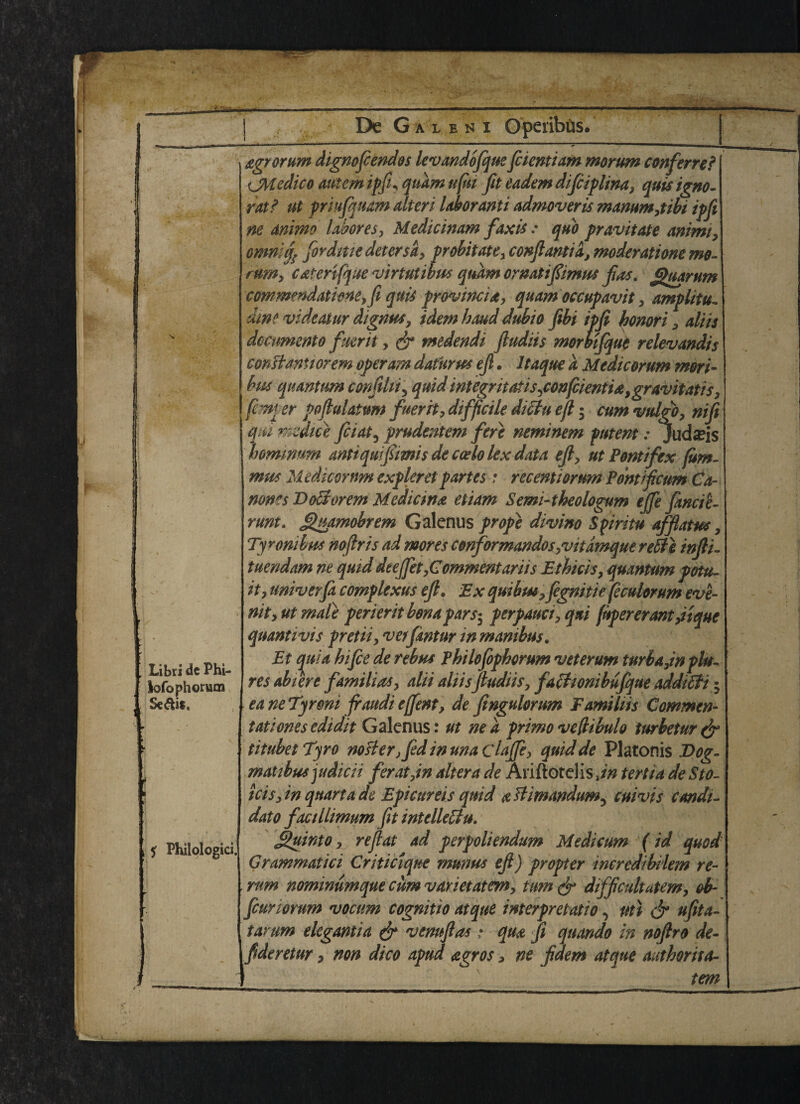 De GALENI Operibus.
ægrorum dignoſcendos levandóſque ſcientiam morum conferre?
Medico autem ipſi, quàm uſui ſit eadem diſciplina, quis igno-
rat? ut priuſquam alteri laboranti admoveris manum, tibi ipſi
ne animo labores, Medicinam faxis: quò pravitate animi,
omniq; ſorditie detersâ, probitate, conſtantiâ, moderatione mo-
rum, cæteriſque virtutibus quàm ornatiſsimus fias. Quarum
commendatione, ſi quis provinciæ, quam occupavit, amplitu-
dine videatur dignus, idem haud dubio ſibi ipſi honori, aliis
documento fuerit, & medendi ſtudiis morbiſque relevandis
conſtantiorem operam daturus eſt. Itaque à Medicorum mori-
bus quantum conſilii, quid integritatis, conſcientiæ, gravitatis,
ſemper poſtulatum fuerit, difficile dictu eſt; cum vulgò, niſi
qui medicè ſciat, prudentem ferè neminem putent: Judæis
hominum antiquiſsimis de cœlo lex data eſt, ut Pontifex ſum-
mus Medicorum expleret partes: recentiorum Pontificum Ca-
nones Doctorem Medicinæ etiam Semi-theologum eſſe ſanciê-
runt. Quamobrem Galenus propè divino Spiritu afflatus,
Tyronibus noſtris ad mores conformandos, vitámque rectè inſti-
tuendam ne quid deeſſet, Commentariis Ethicis, quantum potu-
it, univerſa complexus eſt. Ex quibus, ſegnitie ſeculorum evè-
nit, ut malè perierit bona pars; perpauci, qui ſupererant, iíque
quantivis pretii, verſantur in manibus.
Libri de Phi-
loſophorum
Sectis.
Et quia hiſce de rebus Philoſophorum veterum turba, in plu-
res abiere familias, alii aliis ſtudiis, factionibúſque addicti;
ea ne Tyroni fraudi eſſent, de ſingulorum Familiis Commen-
tationes edidit Galenus: ut ne à primo veſtibulo turbetur &
titubet Tyro noſter, ſed in una Claſſe, quid de Platonis Dog-
matibus judicii ferat, in altera de Ariſtotelis, in tertia de Sto-
icis, in quarta de Epicureis quid æſtimandum, cuivis candi-
dato facillimum ſit intellectu.
5 Philologici.
Quinto, reſtat ad perpoliendum Medicum (id quod
Grammatici Criticíque munus eſt) propter incredibilem re-
rum nominúmque cùm varietatem, tum & difficultatem, ob-
ſcuriorum vocum cognitio atque interpretatio, uti & uſita-
tarum elegantia & venuſtas: quæ ſi quando in noſtro de-
ſideretur, non dico apud ægros, ne fidem atque authorita-
tem